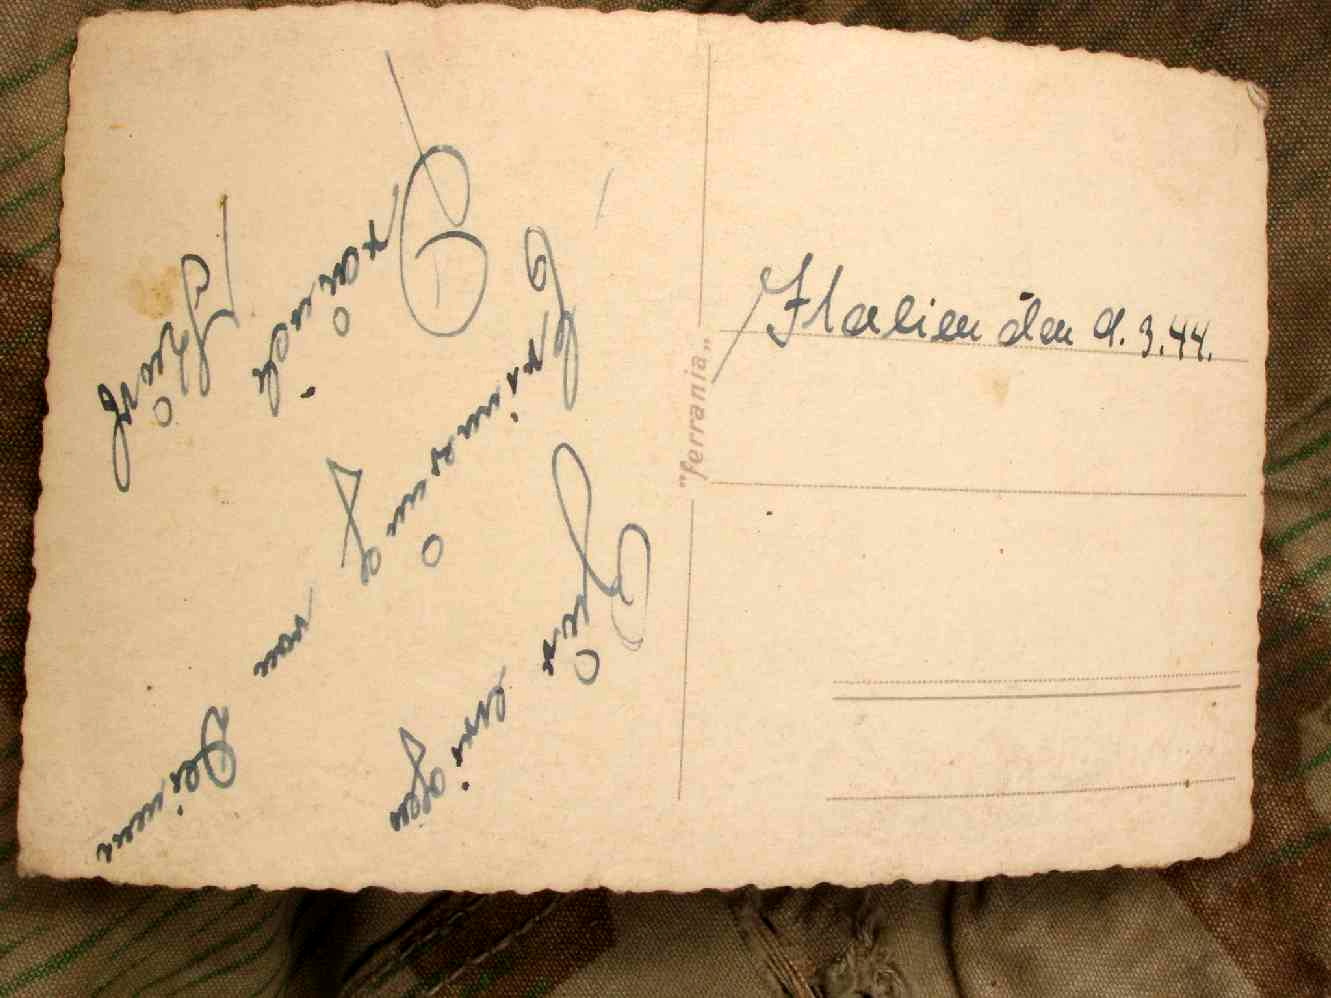 Italien den 9.3.44.
"ferrania"
Zur ewigen
Erinnerung
von Deinem